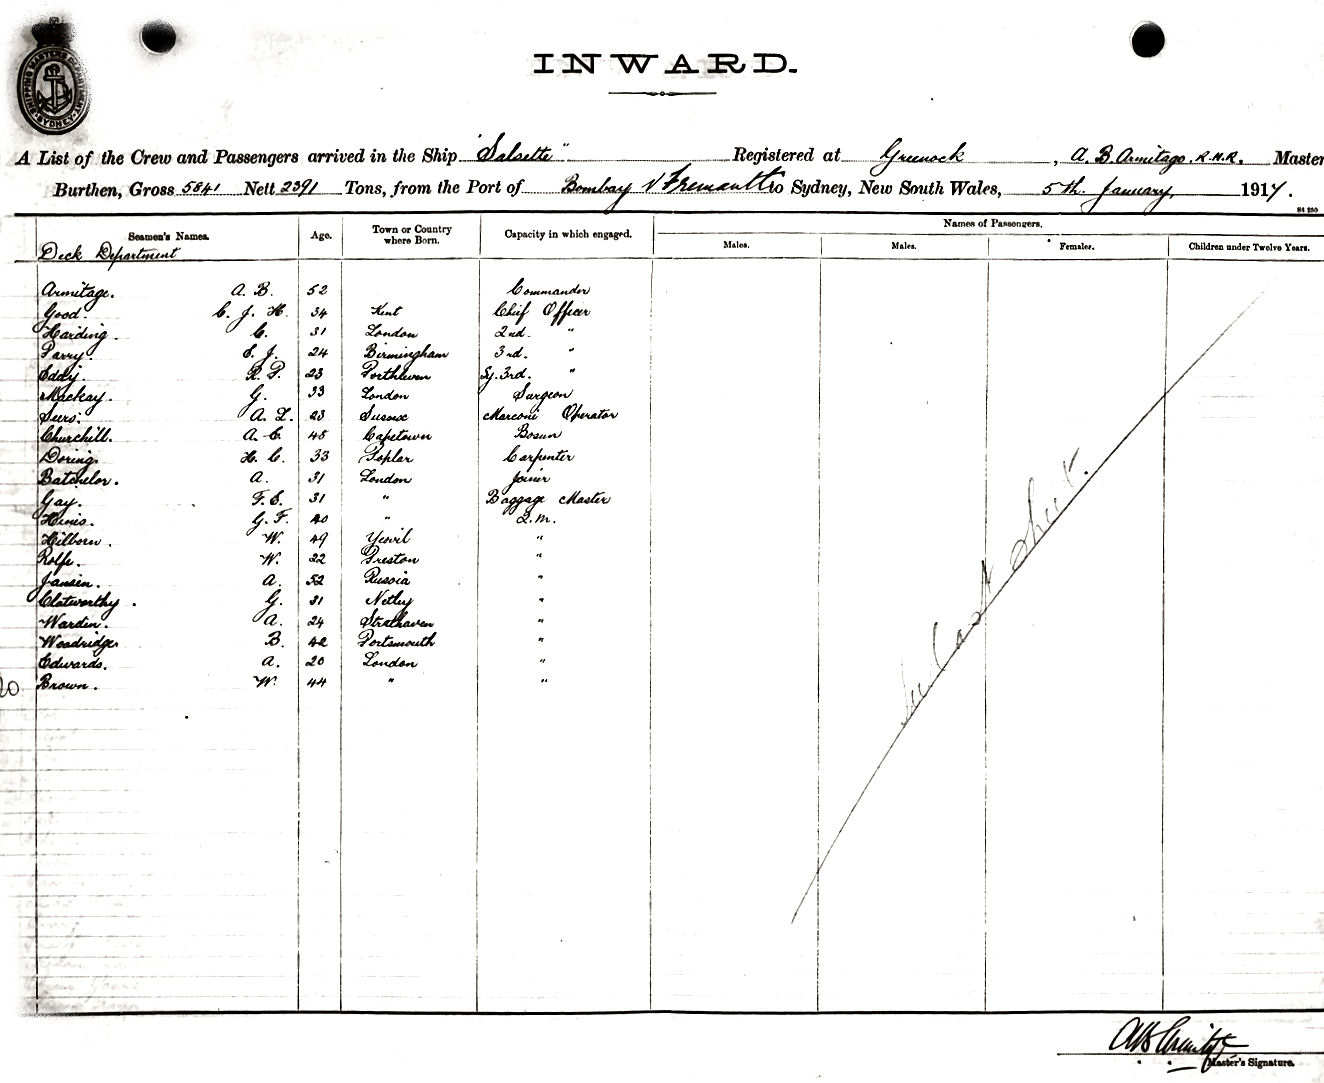 SHIPPING MASTERS DEPARTMENT SYDNEY
INWARD.
A List of the Crew and Passengers arrived in the Ship "Salsette" Registered at Greenock, A. B. Armitage, R.N.R. Master
Burthen, Gross 5841 Nett 2391 Tons, from the Port of Bombay v Fremantle to Sydney, New South Wales, 5th January, 1914.
Seamen's Names. Age. Town or Country where Born. Capacity in which engaged. Names of Passengers.
Males. Males. Females. Children under Twelve Years.
Deck Department
Armitage. A. B. 52 Commander
Good. C. J. H. 34 Kent Chief Officer
Harding. C. 31 London 2nd. "
Parry. E. J. 24 Birmingham 3rd. "
Eddy. R. P. 23 Porthleven 3rd. "
Mackay. G. 33 London Surgeon
A. L. 23 Sussex Marconi Operator
Churchill. A. C. 45 Capetown Bosun
Doring. H. C. 33 Poplar Carpenter
Batchelor. A. 31 London Joiner
Gay. F. E. 31 " Baggage Master
G. F. 40 " Q.M.
Hilborn. W. 49 Yeovil "
Rolfe. W. 22 Preston "
Jansen. A. 52 Russia "
Clatworthy. G. 31 Netley "
Warden. A. 24 Strathaven "
Woodridge. B. 42 Portsmouth "
Edwards. A. 20 London "
20 Brown. W. 44 " "
See last sheet.
A B Armitage
Master's Signature.